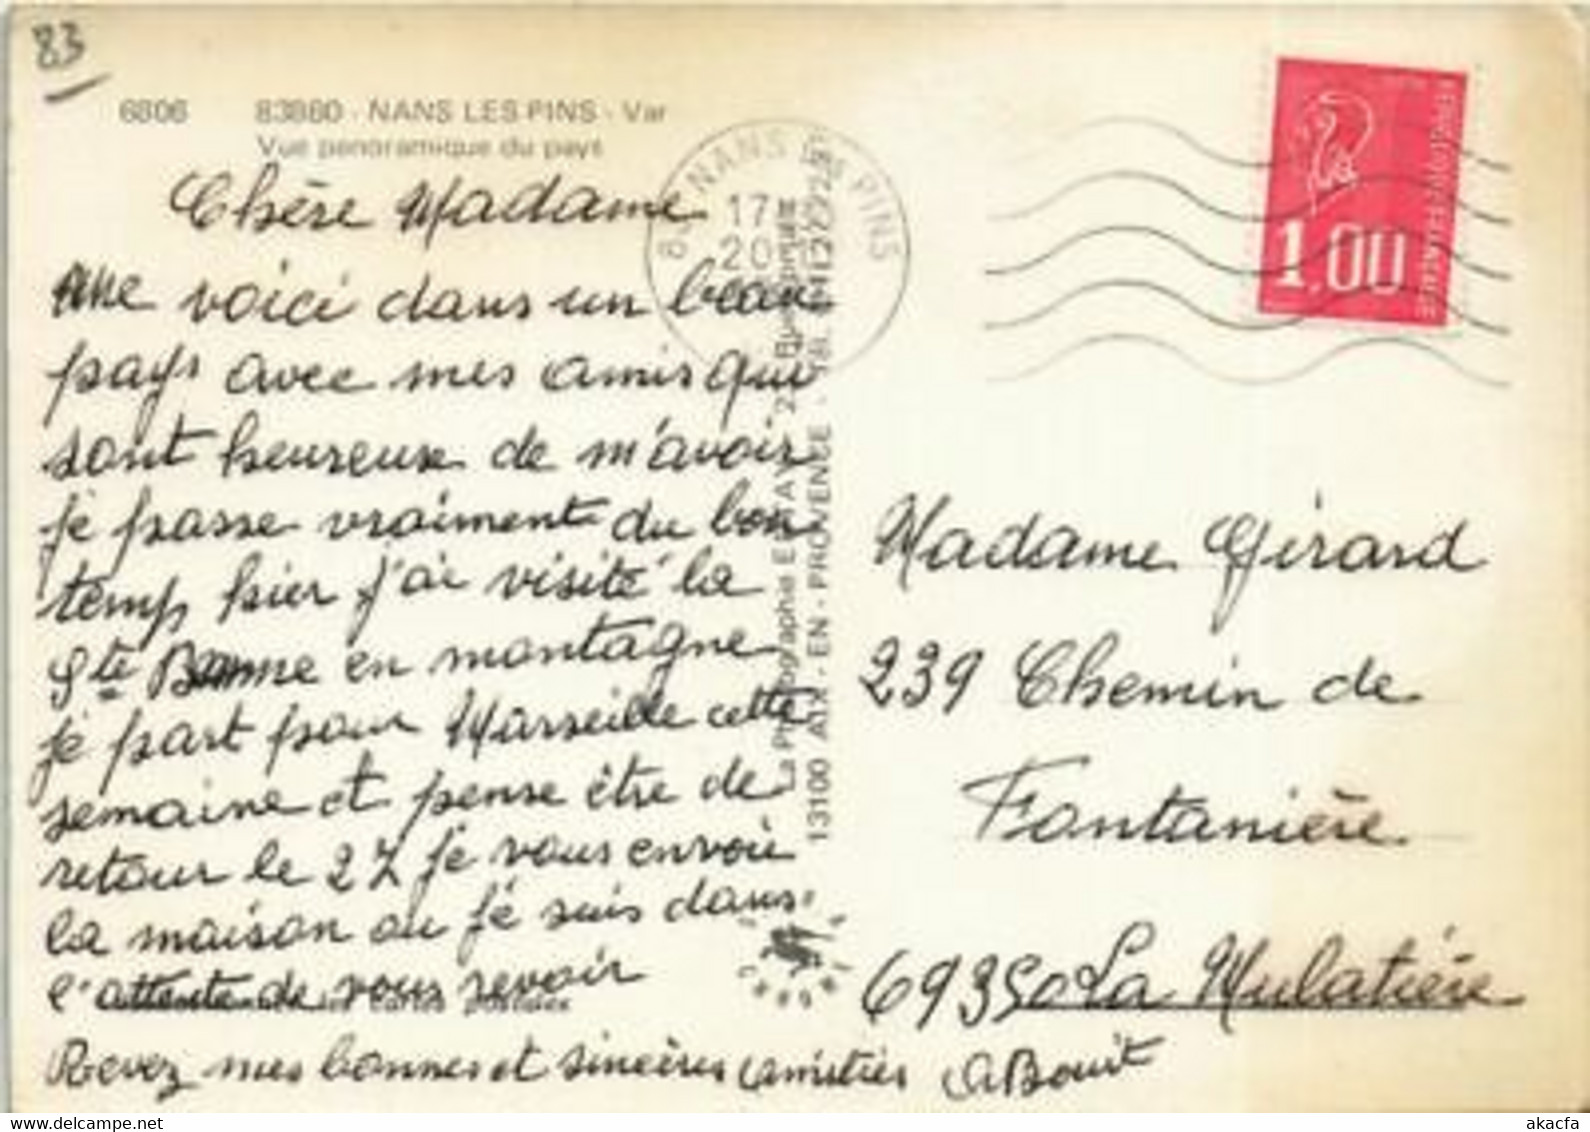 83
6806 83880 - NANS LES PINS - Var
Vue panoramique du pays
Chère Madame
Me voici dans un beau
pays avec mes amis qui
sont heureuse de m'avoir
je passe vraiment du bon
temps hier j'ai visité la
Ste Baume en montagne
je part pour Marseille cette
semaine et pense être de
retour le 27 je vous envoie
la maison ou je suis dans
l'attente de vous revoir
Revez mes bonnes et sincères amitiés ABouit
NANS PINS
17
20
La Photographie
13100 AIX - EN - PROVENCE - Tél.
1,00
FRANCE
Madame Gérard
239 Chemin de
Fontanière
69350 La Mulatière
www.delcampe.net
akacfa